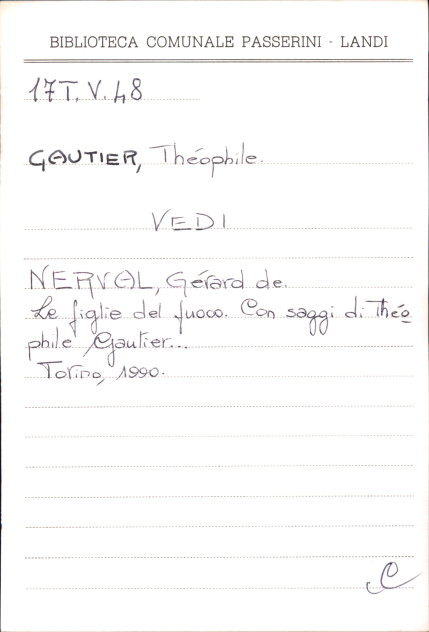 BIBLIOTECA COMUNALE PASSERINI - LANDI
17T.V.48
GAUTIER, Théophile.
VEDI
NERVAL, Gérard de.
Le figlie del fuoco. Con saggi di Théo
phile Gautier...
Torino, 1990.
C